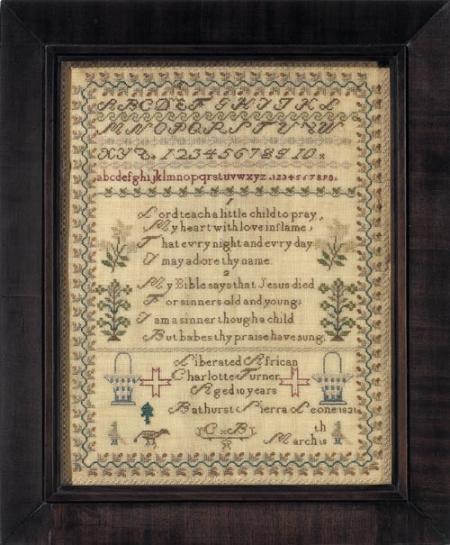 ABCDEF GHIJKL
MNOPQRSTUVW
XYZ. 12345678910.
abcdefghijklmnopqrstuvwxyz.1234567890.
1
Lord teach a little child to pray,
My heart with love inflame,
That ev'ry night and ev'ry day
I may adore thy name.
2
My Bible says that Jesus died
For sinners old and young;
I am a sinner though a child
But babes thy praise have sung.
Liberated African
Charlotte Turner
Aged 10 years
Bathurst Sierra Leone 1831
C B
March 18th